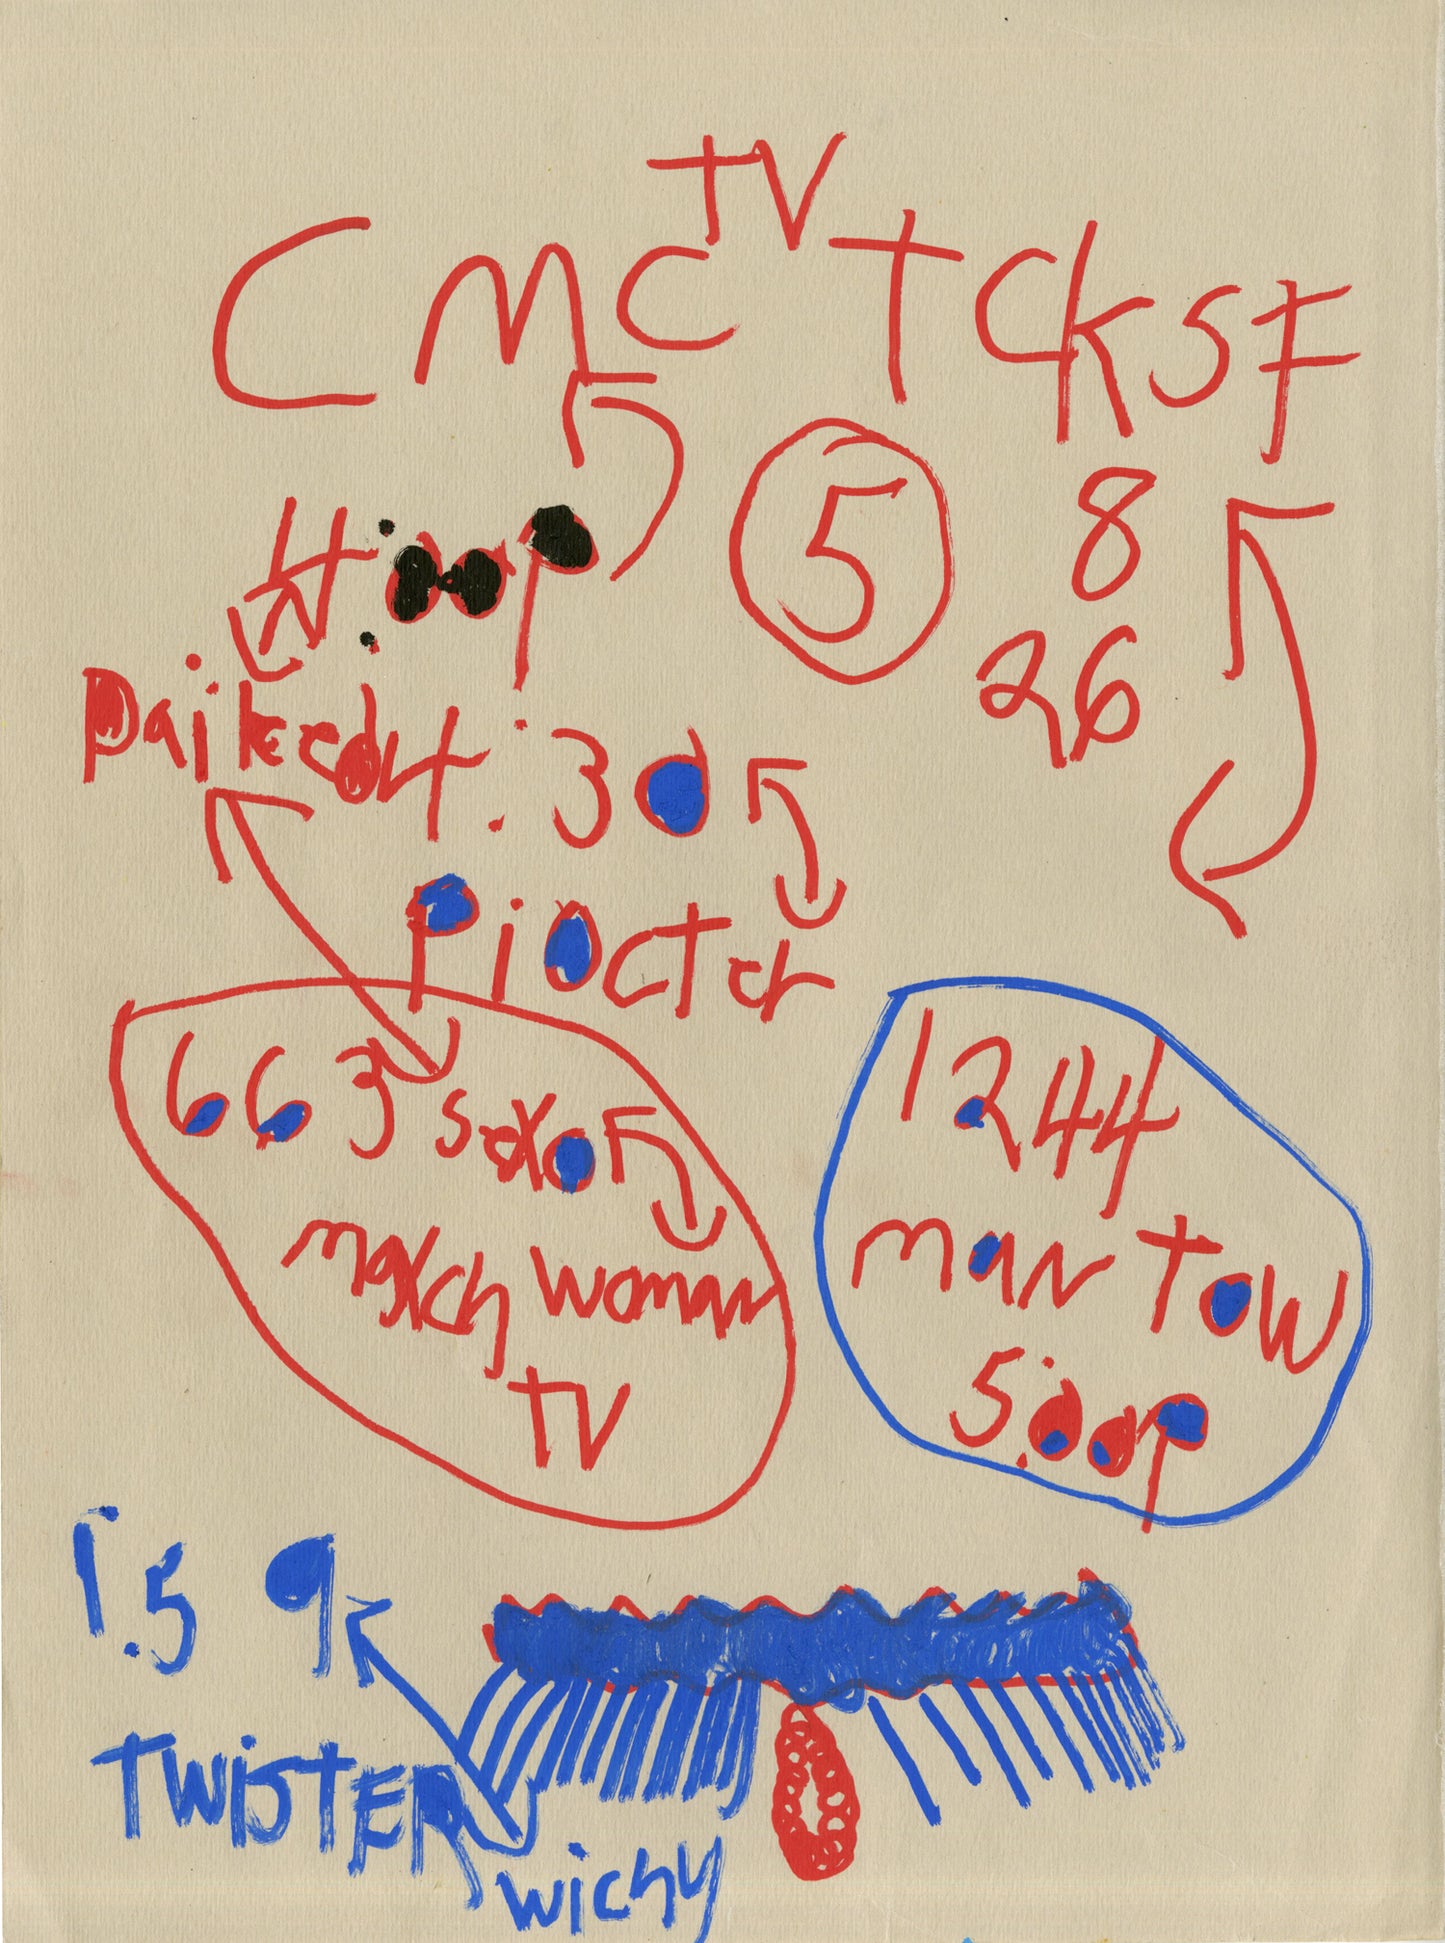 TV
CMC TCKSF
5
8
4:00P
26
4:30
Piocter
663
1244
man Tow
woman
5:00P
TV
1.5 9
TWisTER
wichy